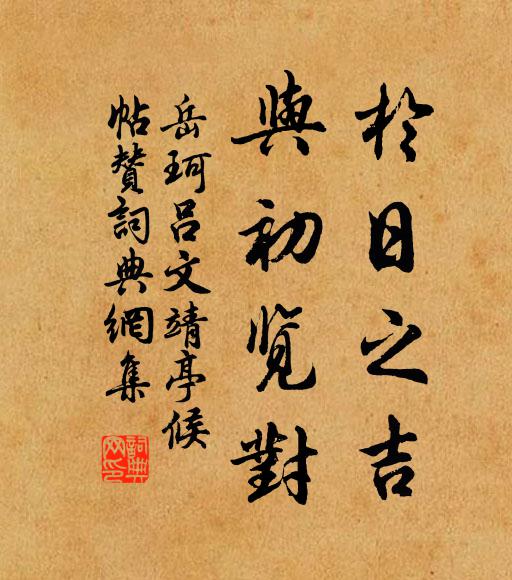 於日之吉
與初覽對
岳珂呂文靖亭候
帖贊詞典網集
詞典網印